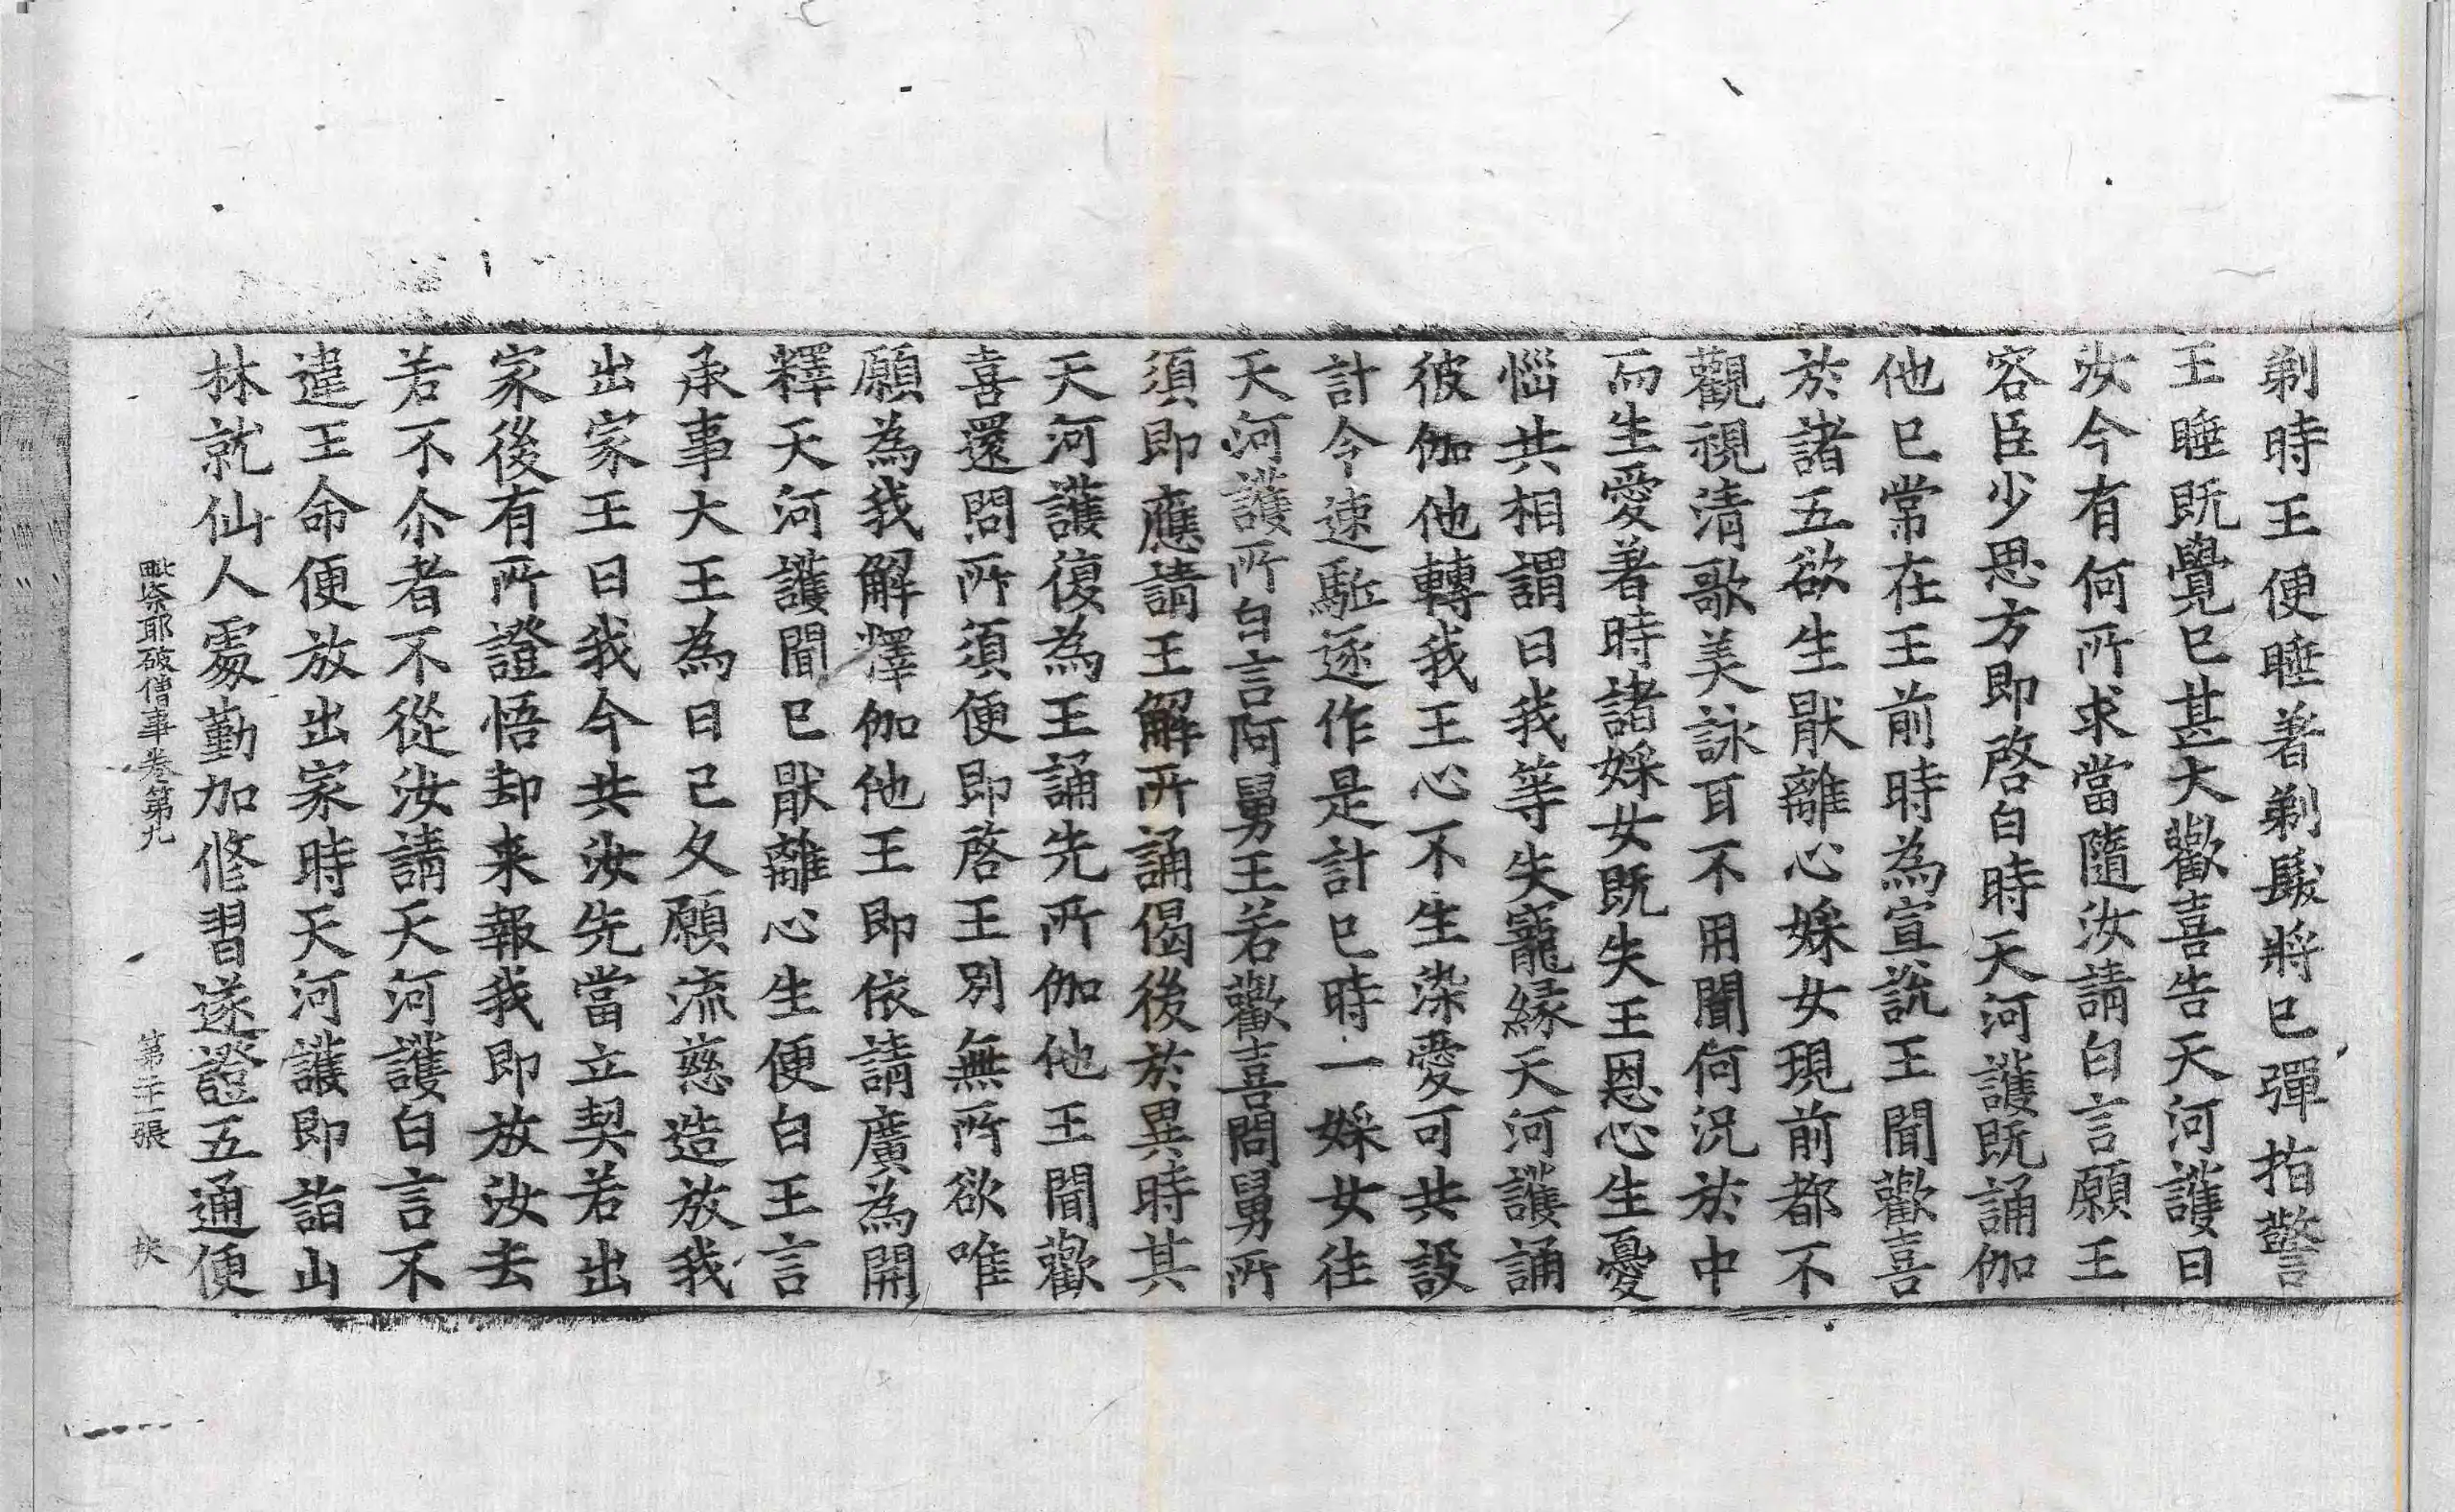 剃時王便睡著剃髮將已彈指警
王睡既覺已甚大歡喜告天河護曰
汝今有何所求當隨汝請白言願王
容臣少思方即啓白時天河護既誦伽
他已常在王前時為宣說王聞歡喜
於諸五欲生猒離心婇女現前都不
觀視清歌美詠耳不用聞何況於中
而生愛著時諸婇女既失王恩心生憂
惱共相謂曰我等失寵緣天河護誦
彼伽他轉我王心不生染愛可共設
計令速駈逐作是計已時一婇女往
天河護所白言阿舅王若歡喜問舅所
須即應請王解所誦偈後於異時其
天河護復為王誦先所伽他王聞歡
喜還問所須便即啓王別無所欲唯
願為我解釋伽他王即依請廣為開
釋天河護聞已猒離心生便白王言
承事大王為日已久願流慈造放我
出家王曰我今共汝先當立契若出
家後有所證悟却来報我即放汝去
若不尒者不從汝請天河護白言不
違王命便放出家時天河護即詣山
林就仙人處勤加修習遂證五通便
毗奈耶破僧事卷第九 第二十一張